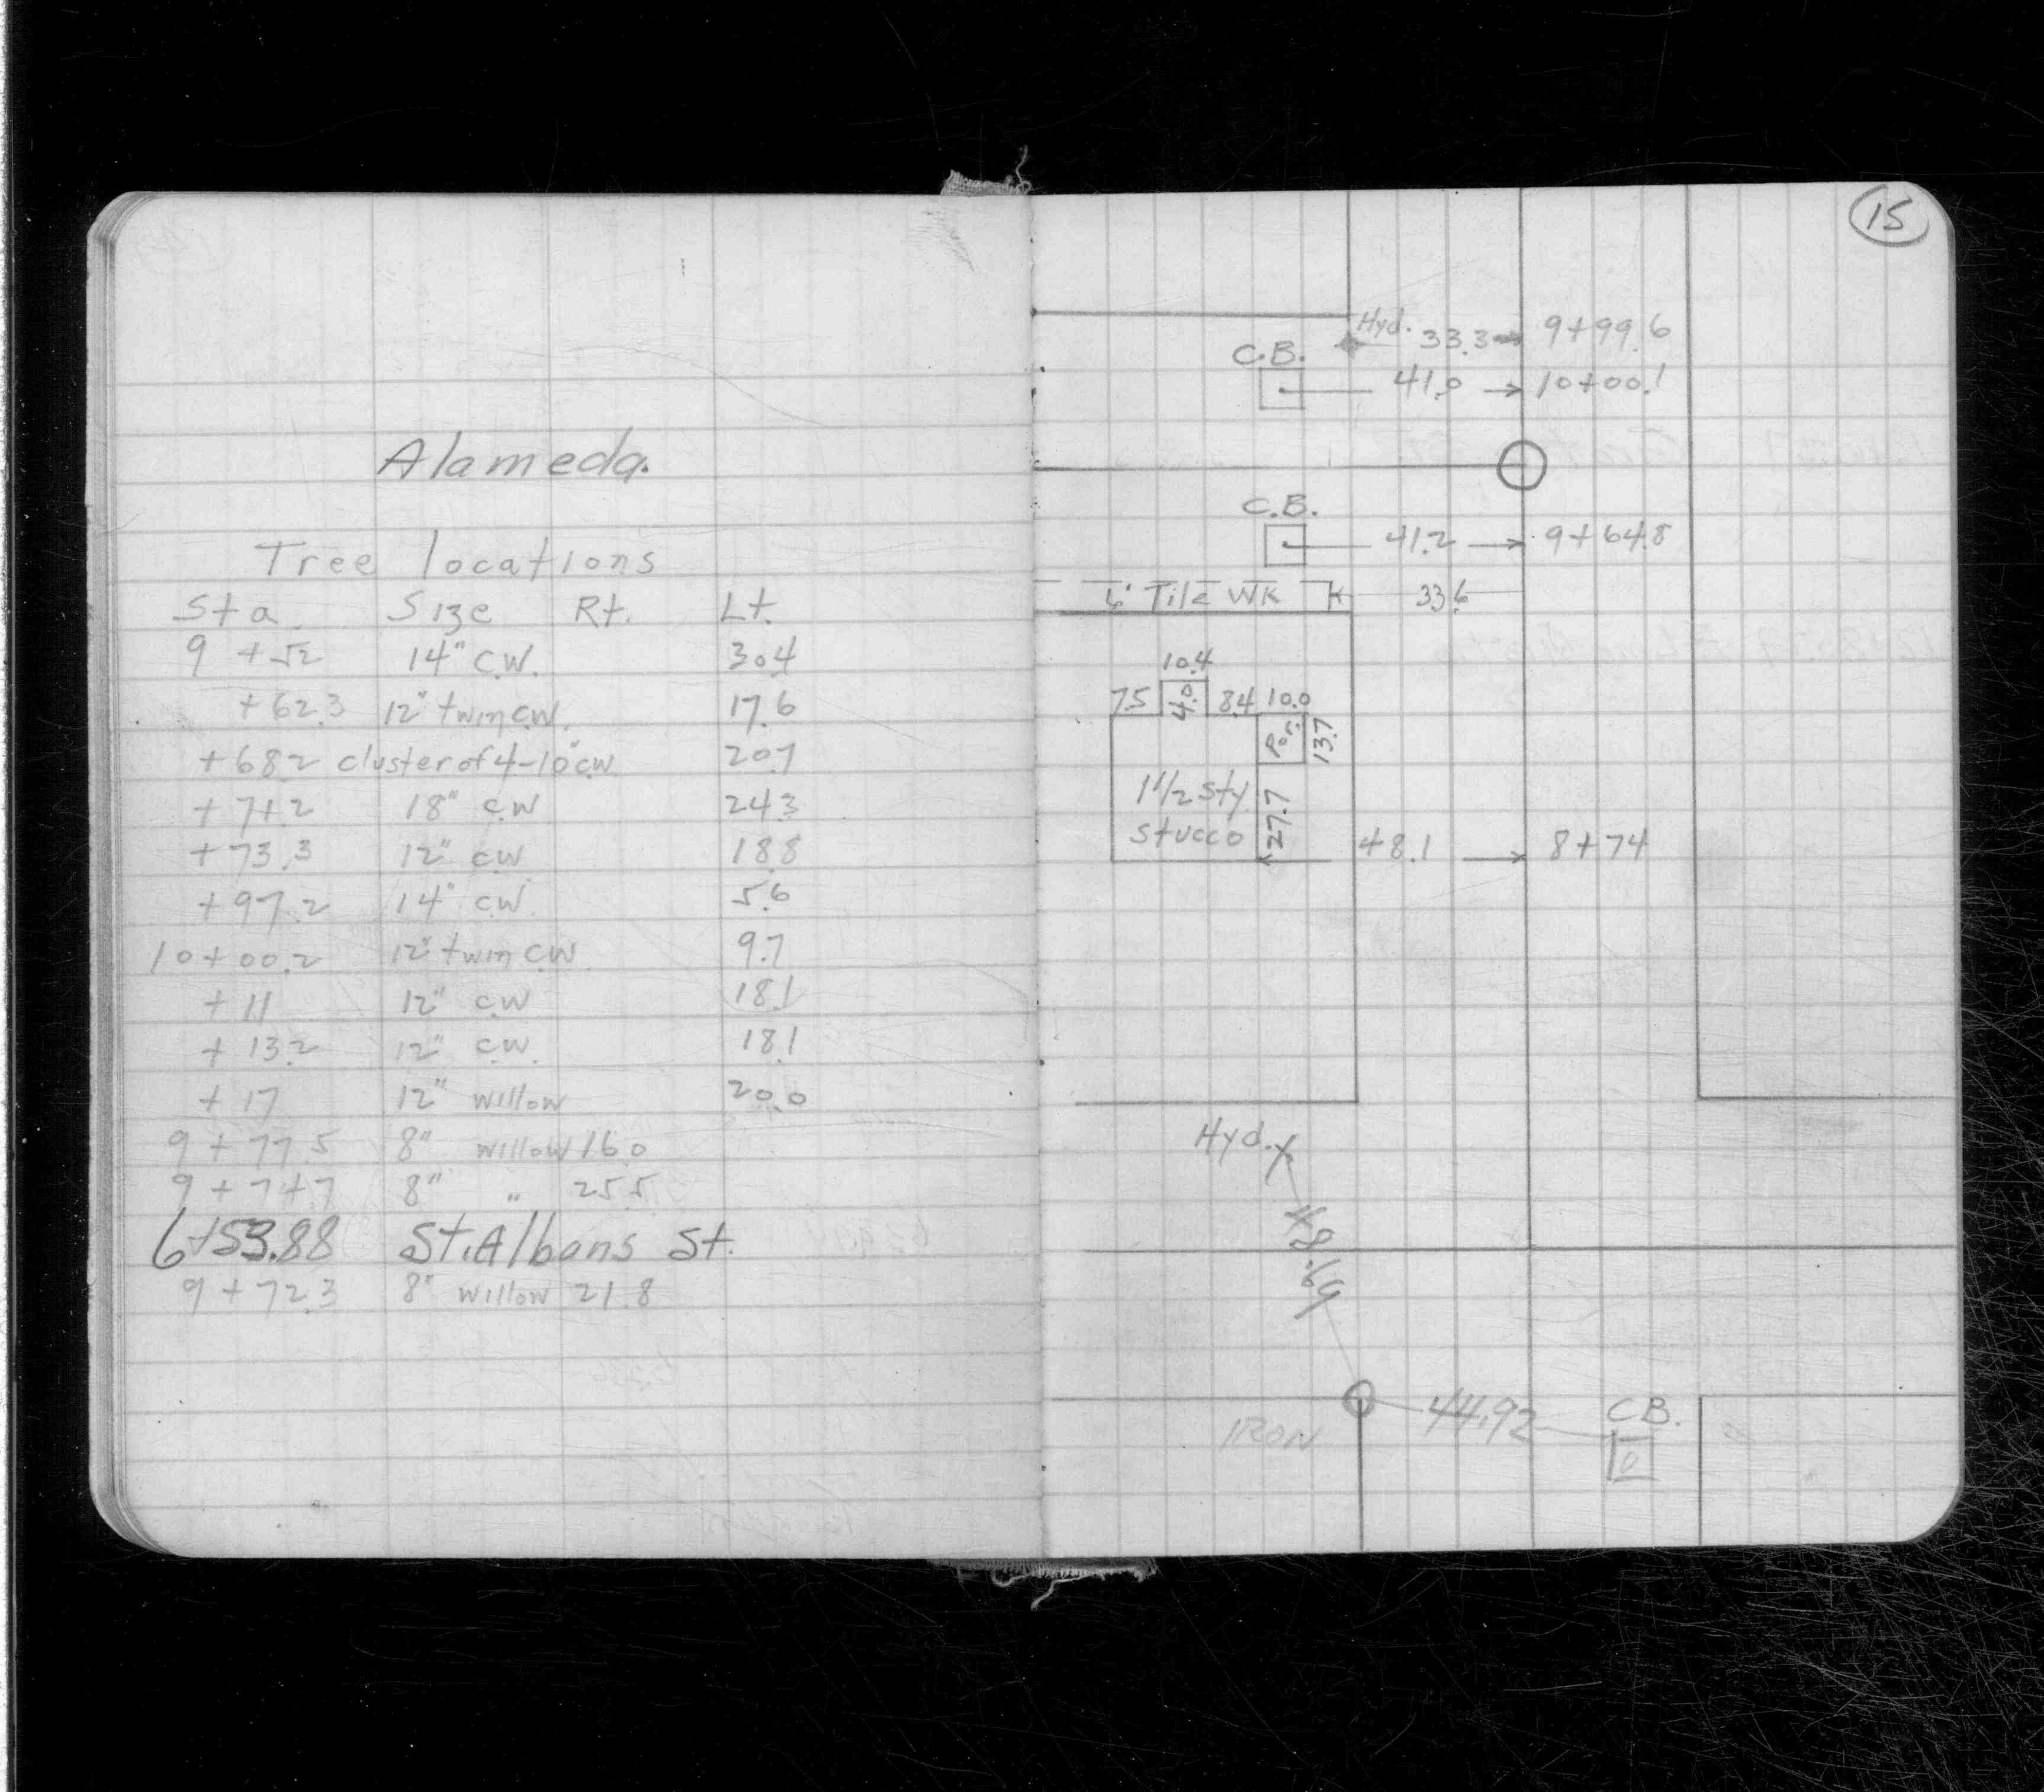 Alameda.
Tree locations
Sta. Size Rt. Lt.
9 + 52 14" C.W. 30.4
+ 62.3 12" twin C.W. 17.6
+ 68.2 cluster of 4-10" C.W. 20.7
+ 71.2 18" C.W 24.3
+ 73.3 12" C.W 18.8
+ 97.2 14" C.W. 5.6
10 + 00.2 12" twin C.W 9.7
+ 11 12" C.W 18.1
+ 13.2 12" C.W. 18.1
+ 17 12" willow 20.0
9 + 77.5 8" willow 16.0
9 + 74.7 8" " 25.5
6+53.88 St. Albans St.
9 + 72.3 8" willow 21.8
15
Hyd. 33.3 9+99.6
C.B.
41.0 10+00.1
C.B.
41.2 9+64.8
6' Tile WK 33.6
10.4
7.5 4.0 8.4 10.0
Por. 13.7
1 1/2 sty
stucco 27.7 48.1 8+74
Hyd.
IRON 44.92 C.B.